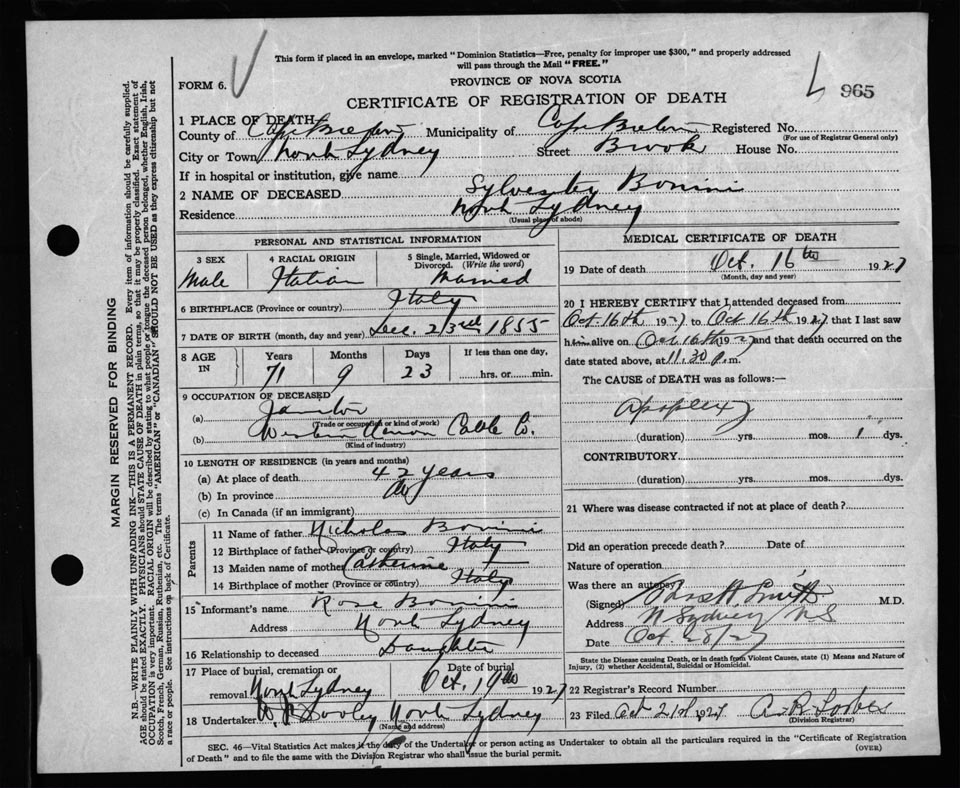 This form if placed in an envelope, marked "Dominion Statistics—Free, penalty for improper use $300," and properly addressed
will pass through the Mail "FREE."
FORM 6.
PROVINCE OF NOVA SCOTIA
965
CERTIFICATE OF REGISTRATION OF DEATH
1 PLACE OF DEATH
County of Cape Breton Municipality of Cape Breton Registered No.
(For use of Registrar General only)
City or Town North Sydney Street Brook House No.
If in hospital or institution, give name
2 NAME OF DECEASED Sylvester Bonini
Residence North Sydney
(Usual place of abode)
PERSONAL AND STATISTICAL INFORMATION
3 SEX 4 RACIAL ORIGIN 5 Single, Married, Widowed or Divorced. (Write the word)
Male Italian Married
6 BIRTHPLACE (Province or country) Italy
7 DATE OF BIRTH (month, day and year) Dec. 23rd 1855
8 AGE IN Years Months Days If less than one day,
71 9 23 hrs. or min.
9 OCCUPATION OF DECEASED
(a) Janitor
(Trade or occupation or kind of work)
(b) Western Union Cable Co.
(Kind of industry)
10 LENGTH OF RESIDENCE (in years and months)
(a) At place of death 42 years
(b) In province
(c) In Canada (if an immigrant)
Parents
11 Name of father Nicholas Bonini
12 Birthplace of father (Province or country) Italy
13 Maiden name of mother Catherine
14 Birthplace of mother (Province or country) Italy
15 Informant's name Rose Bonini
Address North Sydney
16 Relationship to deceased Daughter
17 Place of burial, cremation or Date of burial
removal North Sydney Oct. 19th 1927
18 Undertaker North Sydney
(Name and address)
MEDICAL CERTIFICATE OF DEATH
19 Date of death Oct. 16th 1927
(Month, day and year)
20 I HEREBY CERTIFY that I attended deceased from
Oct 16th 1927 to Oct 16th 1927 that I last saw
him alive on Oct 16th 1927 and that death occurred on the
date stated above, at 11.30 p.m.
The CAUSE of DEATH was as follows:—
Apoplexy
(duration) yrs. mos. 1 dys.
CONTRIBUTORY
(duration) yrs. mos. dys.
21 Where was disease contracted if not at place of death?
Did an operation precede death? Date of
Nature of operation
Was there an autopsy
(Signed) Smith M.D.
Address N Sydney NS
Date Oct 28/27
State the Disease causing Death, or in death from Violent Causes, state (1) Means and Nature of
Injury, (2) whether Accidental, Suicidal or Homicidal.
22 Registrar's Record Number
23 Filed Oct 21st 1927 A. R. Forbes
(Division Registrar)
SEC. 46—Vital Statistics Act makes it the duty of the Undertaker or person acting as Undertaker to obtain all the particulars required in the "Certificate of Registration
of Death" and to file the same with the Division Registrar who shall issue the burial permit.
(OVER)
MARGIN RESERVED FOR BINDING
N.B.—WRITE PLAINLY WITH UNFADING INK—THIS IS A PERMANENT RECORD. Every item of information should be carefully supplied.
AGE should be stated EXACTLY. PHYSICIANS should STATE CAUSE OF DEATH in plain terms, so that it may be properly classified. Exact statement of
OCCUPATION is very important. RACIAL ORIGIN will be described by stating to what people or tongue the deceased person belonged, whether English, Irish,
Scotch, French, German, Russian, Ruthenian, etc. The terms "AMERICAN" or "CANADIAN" SHOULD NOT BE USED as they express citizenship but not
a race or people. See instructions on back of Certificate.